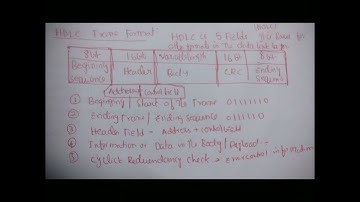 HDLC Frame Format:
HDLC is 5 Fields
in the data link layer.
8bit 16bit variable length 16bit 8bit
Beginning sequence Header Body CRC Ending Sequence
Address control field
① Beginning / Start of the Frame 01111110
② Ending Frame / Ending Sequence 01111110
③ Header Field = Address + control field
④ Information or Data is the Body / Payload.
⑤ Cyclic Redundancy Check → error control information